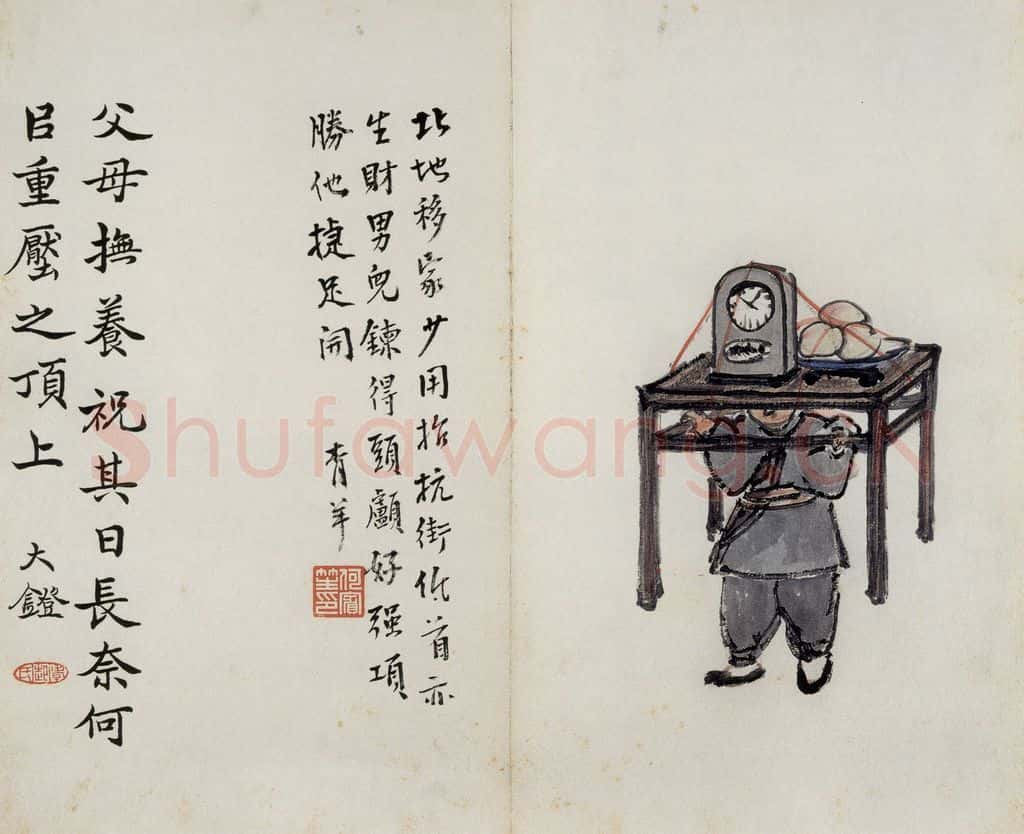 北地移家少用抬抗街低首亦
生財男兒鍊得頭顱好强項
勝他捷足開
青羊
父母撫養祝其日長奈何
㠯重壓之頂上
大鐙
shufawang.ck